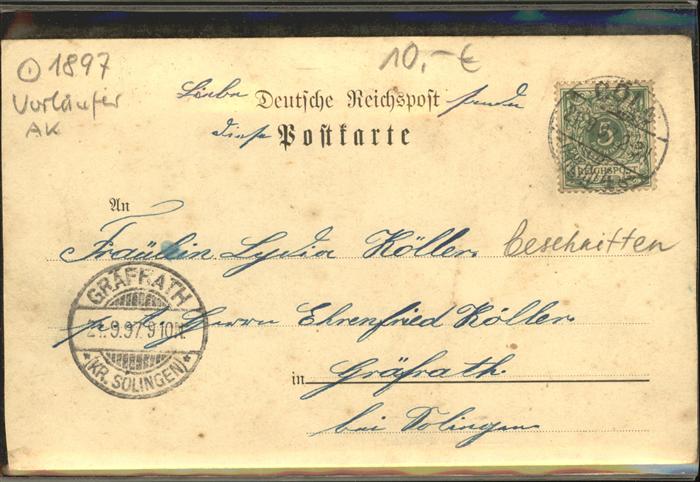 1897 10,-€
Vorläufer
AK
Liebe Deutsche Reichspost sende
diese Postkarte
CÖLN
5
REICHSPOST
An
Fräulein Lydia Köller. beschnitten
Herrn Ehrenfried Köller
in Gräfrath
bei Solingen
GRÄFRATH
21.9.97.9 10N.
*(KR. SOLINGEN)*